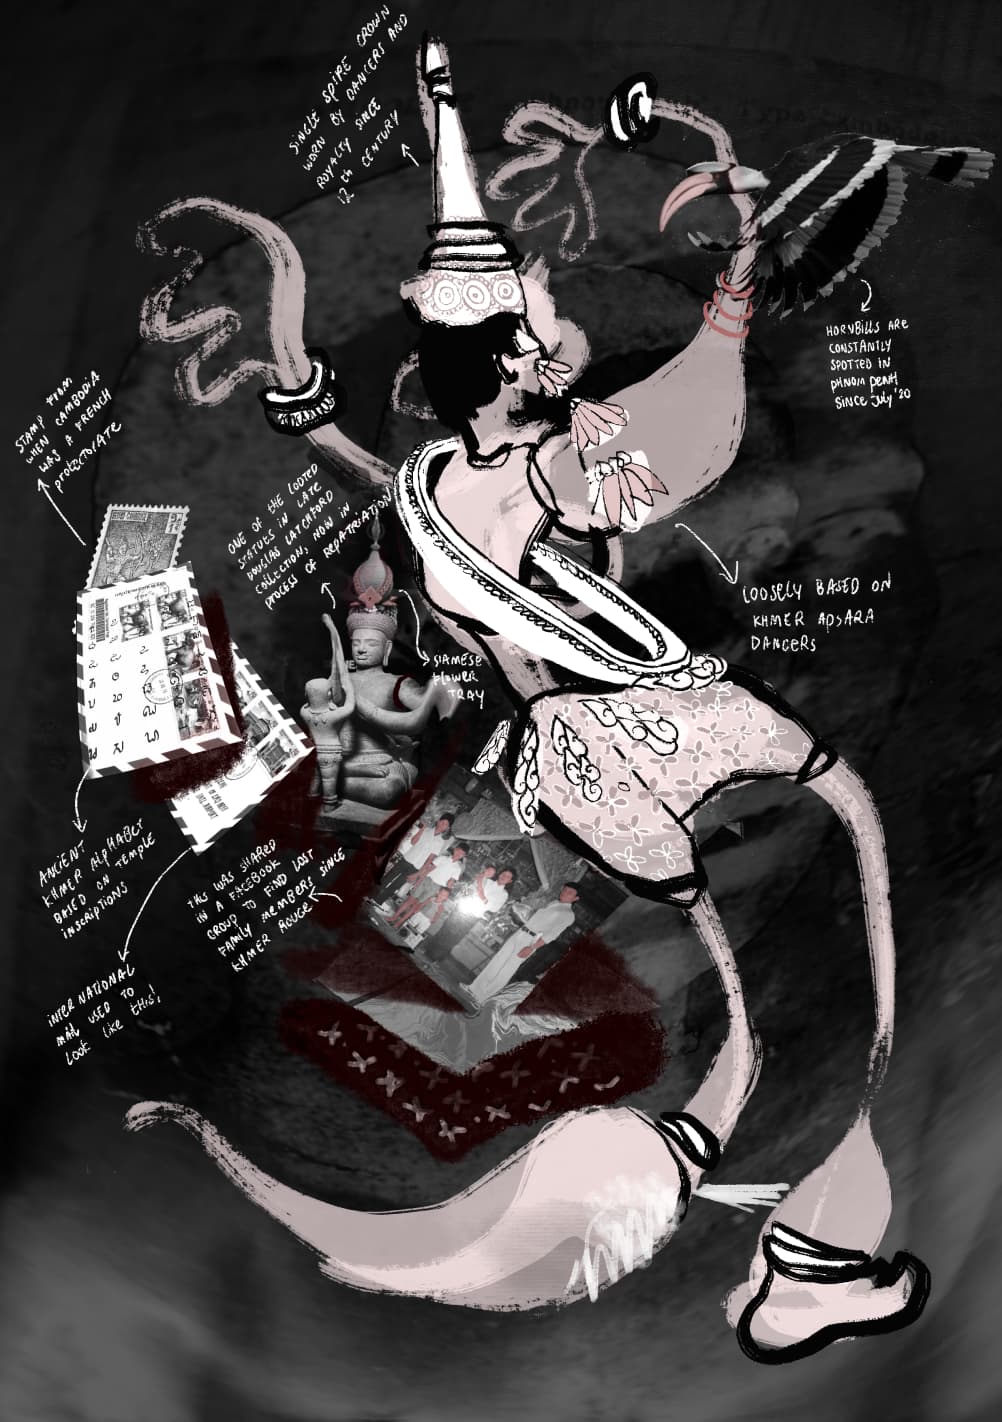 SINGLE SPIRE CROWN
WORN BY DANCERS AND
ROYALTY SINCE
12th CENTURY
HORNBILLS ARE
CONSTANTLY
SPOTTED IN
PHNOM PENH
SINCE July '20
STAMP FROM
WHEN CAMBODIA
WAS A FRENCH
PROTECTORATE
ONE OF THE LOOTED
STATUES IN LATE
DOUGLAS LATCHFORD
COLLECTION, NOW IN
PROCESS OF REPATRIATION
LOOSELY BASED ON
KHMER APSARA
DANCERS
SIAMESE
FLOWER
TRAY
ANCIENT
KHMER ALPHABET
BASED ON TEMPLE
INSCRIPTIONS
THIS WAS SHARED
IN A FACEBOOK
GROUP TO FIND LOST
FAMILY MEMBERS SINCE
KHMER ROUGE
INTERNATIONAL
MAIL USED TO
LOOK LIKE THIS!